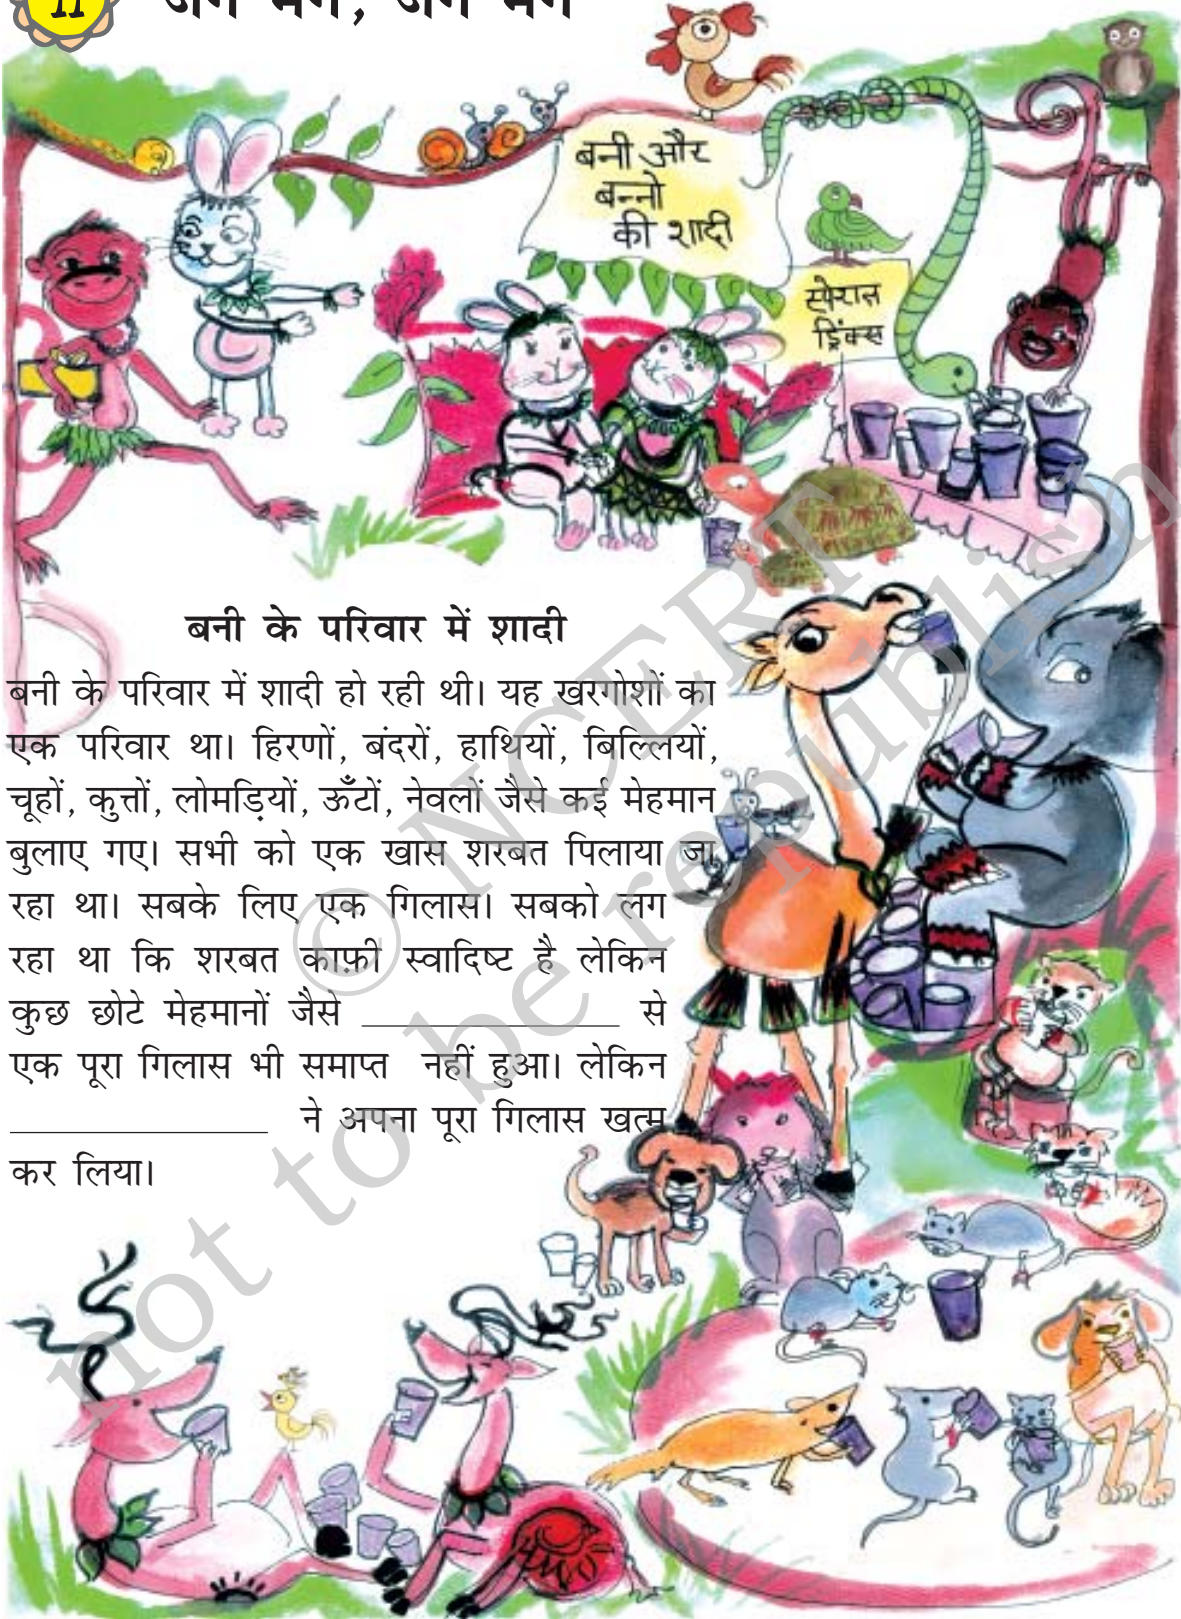 11
जग मग, जग मग
बनी और
बन्नो
की शादी
स्पेशल
ड्रिंक्स
बनी के परिवार में शादी
बनी के परिवार में शादी हो रही थी। यह खरगोशों का
एक परिवार था। हिरणों, बंदरों, हाथियों, बिल्लियों,
चूहों, कुत्तों, लोमड़ियों, ऊँटों, नेवलों जैसे कई मेहमान
बुलाए गए। सभी को एक खास शरबत पिलाया जा
रहा था। सबके लिए एक गिलास। सबको लग
रहा था कि शरबत काफ़ी स्वादिष्ट है लेकिन
कुछ छोटे मेहमानों जैसे ______________ से
एक पूरा गिलास भी समाप्त नहीं हुआ। लेकिन
______________ ने अपना पूरा गिलास खत्म
कर लिया।
© NCERT
not to be republished